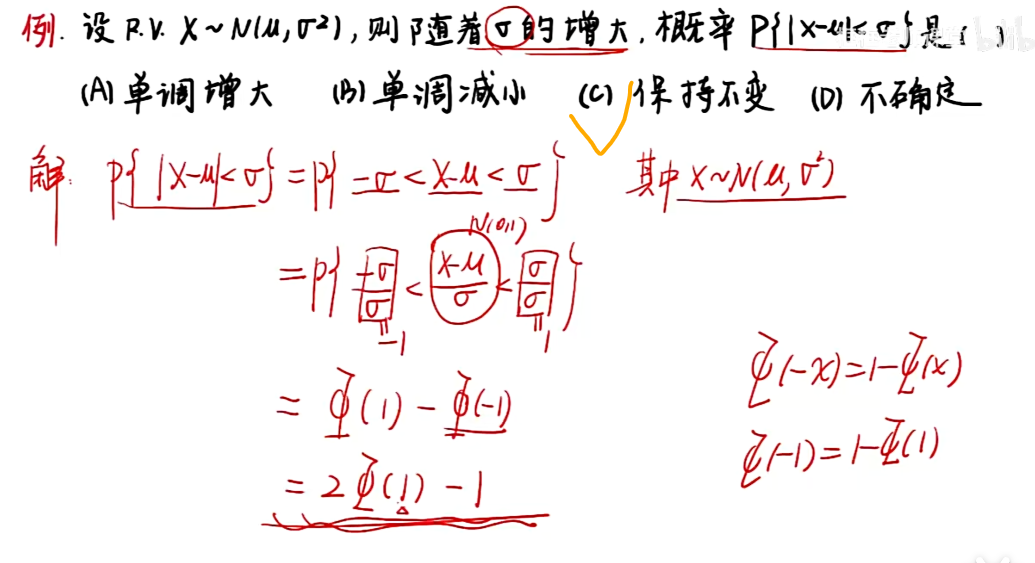 例. 设 R.V. X~N(μ,σ²), 则随着σ的增大, 概率 P{|X-μ|<σ}是( )
(A) 单调增大 (B) 单调减小 (C) 保持不变 (D) 不确定
解: P{|X-μ|<σ} = P{-σ < X-μ < σ} 其中 X~N(μ,σ²)
N(0,1)
= P{ -σ/σ < (X-μ)/σ < σ/σ }
-1 1
Φ(-x)=1-Φ(x)
= Φ(1) - Φ(-1)
Φ(-1)=1-Φ(1)
= 2Φ(1) - 1